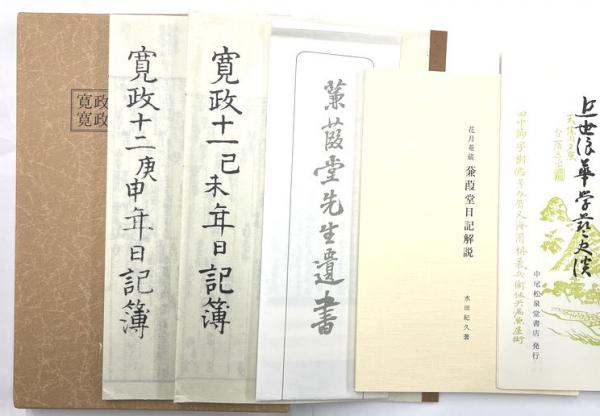 寛政
寛政
寛政十二庚申年日記簿
寛政十一己未年日記簿
蒹葭堂先生遺書
花月菴蔵
蒹葭堂日記解説
水田紀久著
近世浪華学芸史談
中尾松泉堂書店 発行